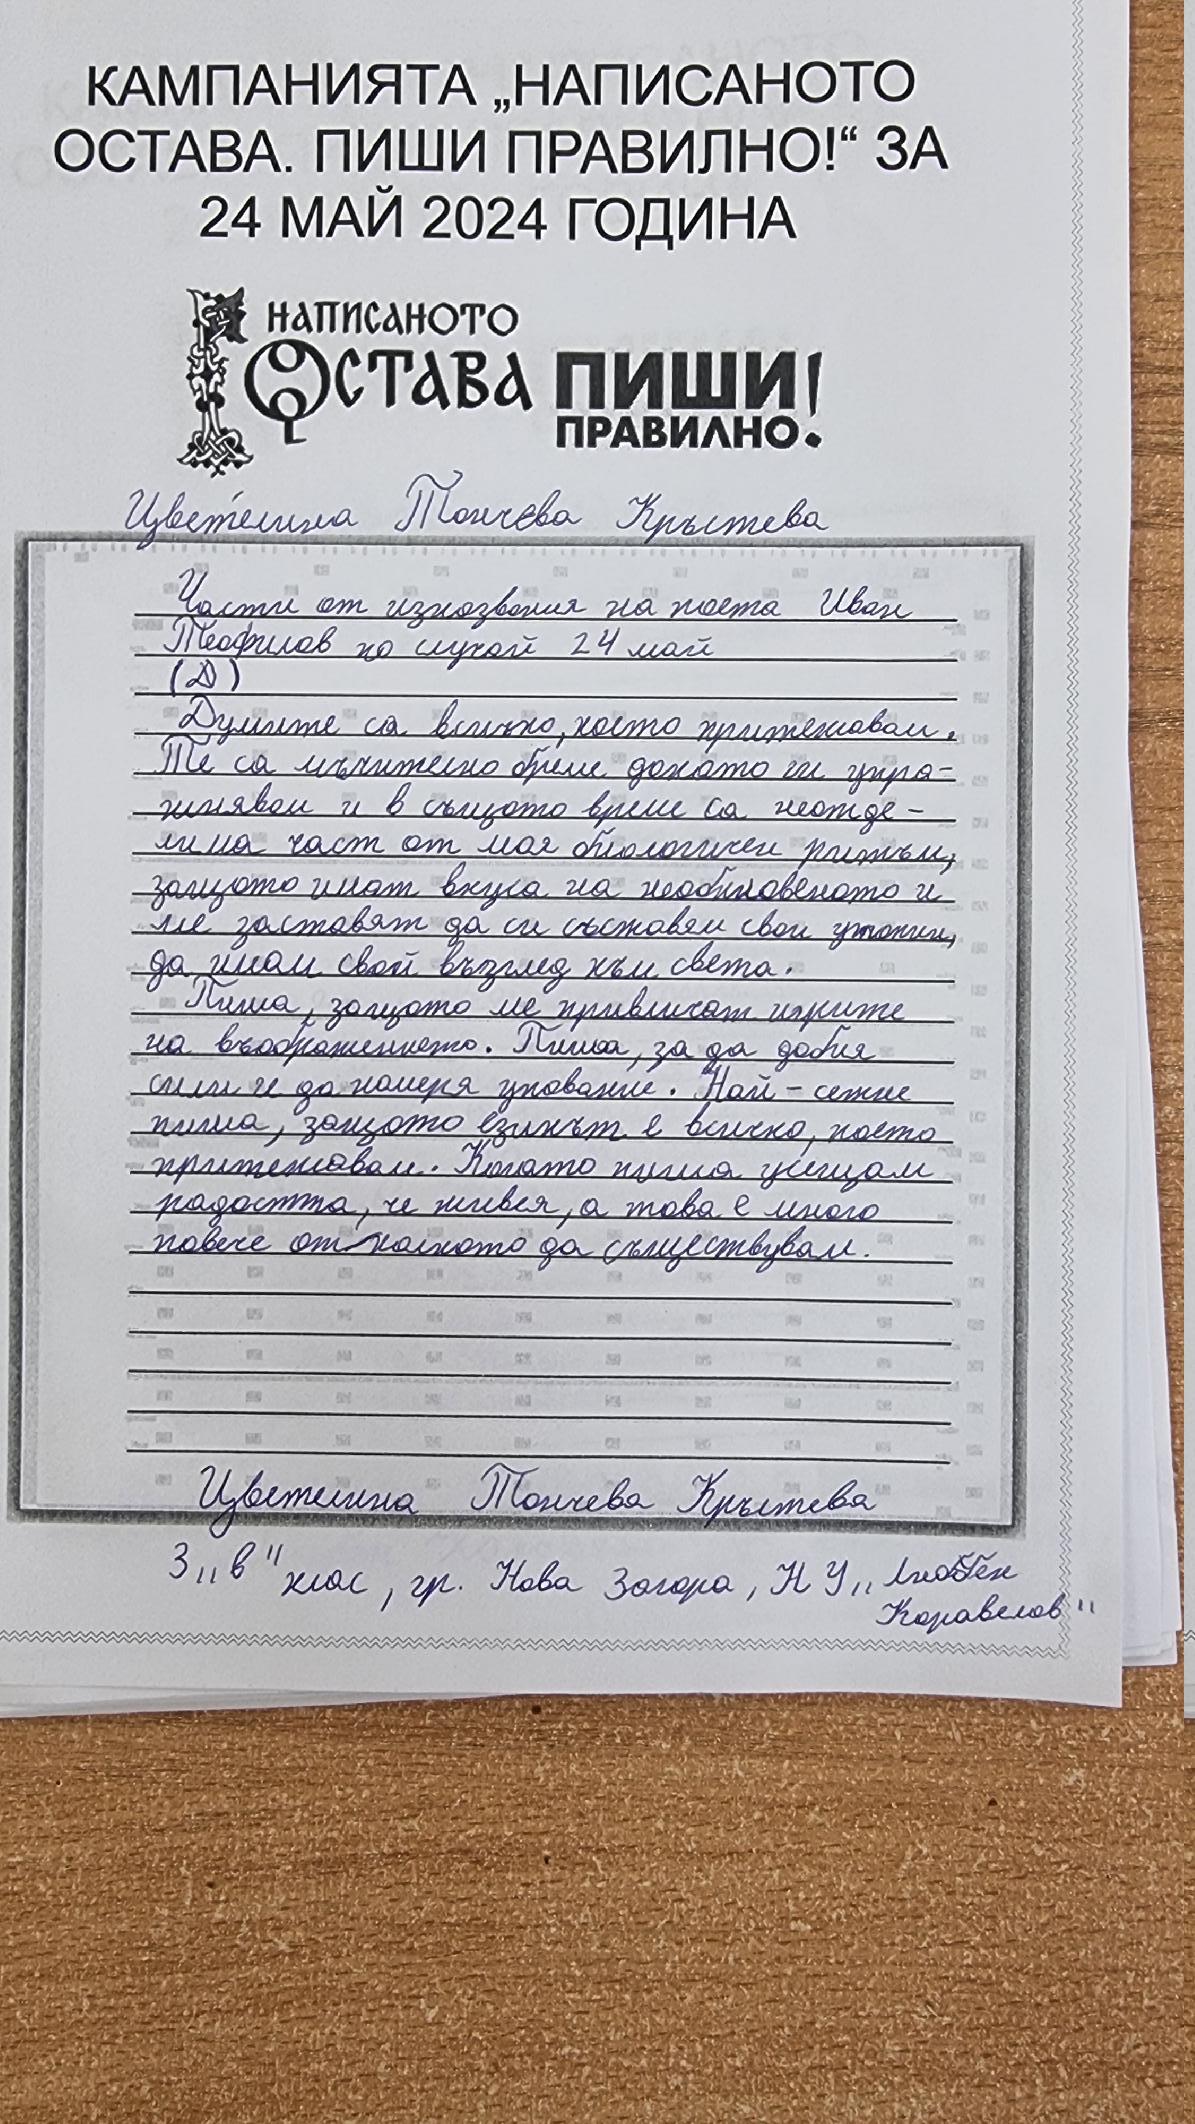 КАМПАНИЯТА „НАПИСАНОТО
ОСТАВА. ПИШИ ПРАВИЛНО!“ ЗА
24 МАЙ 2024 ГОДИНА
НАПИСАНОТО
ОСТАВА ПИШИ!
ПРАВИЛНО
Цветелина Тончева Кръстева
Части от изказвания на поета Иван
Теофилов по случай 24 май
(Д)
Думите са всичко, което притежавам.
Те са мъчително бреме докато ги упра-
жнявам и в същото време са неотде-
лима част от моя биологичен ритъм,
защото имат вкуса на необикновеното и
ме заставят да си съставям свои утопии,
да имам свой възглед към света.
Пиша, защото ме привличат игрите
на въображението. Пиша, за да добия
сили и да намеря упование. Най-сетне
пиша, защото езикът е всичко, което
притежавам. Когато пиша усещам
радостта, че живея, а това е много
повече от колкото да съществувам.
Цветелина Тончева Кръстева
3 „в“ клас, гр. Нова Загора, НУ „Любен
Каравелов“